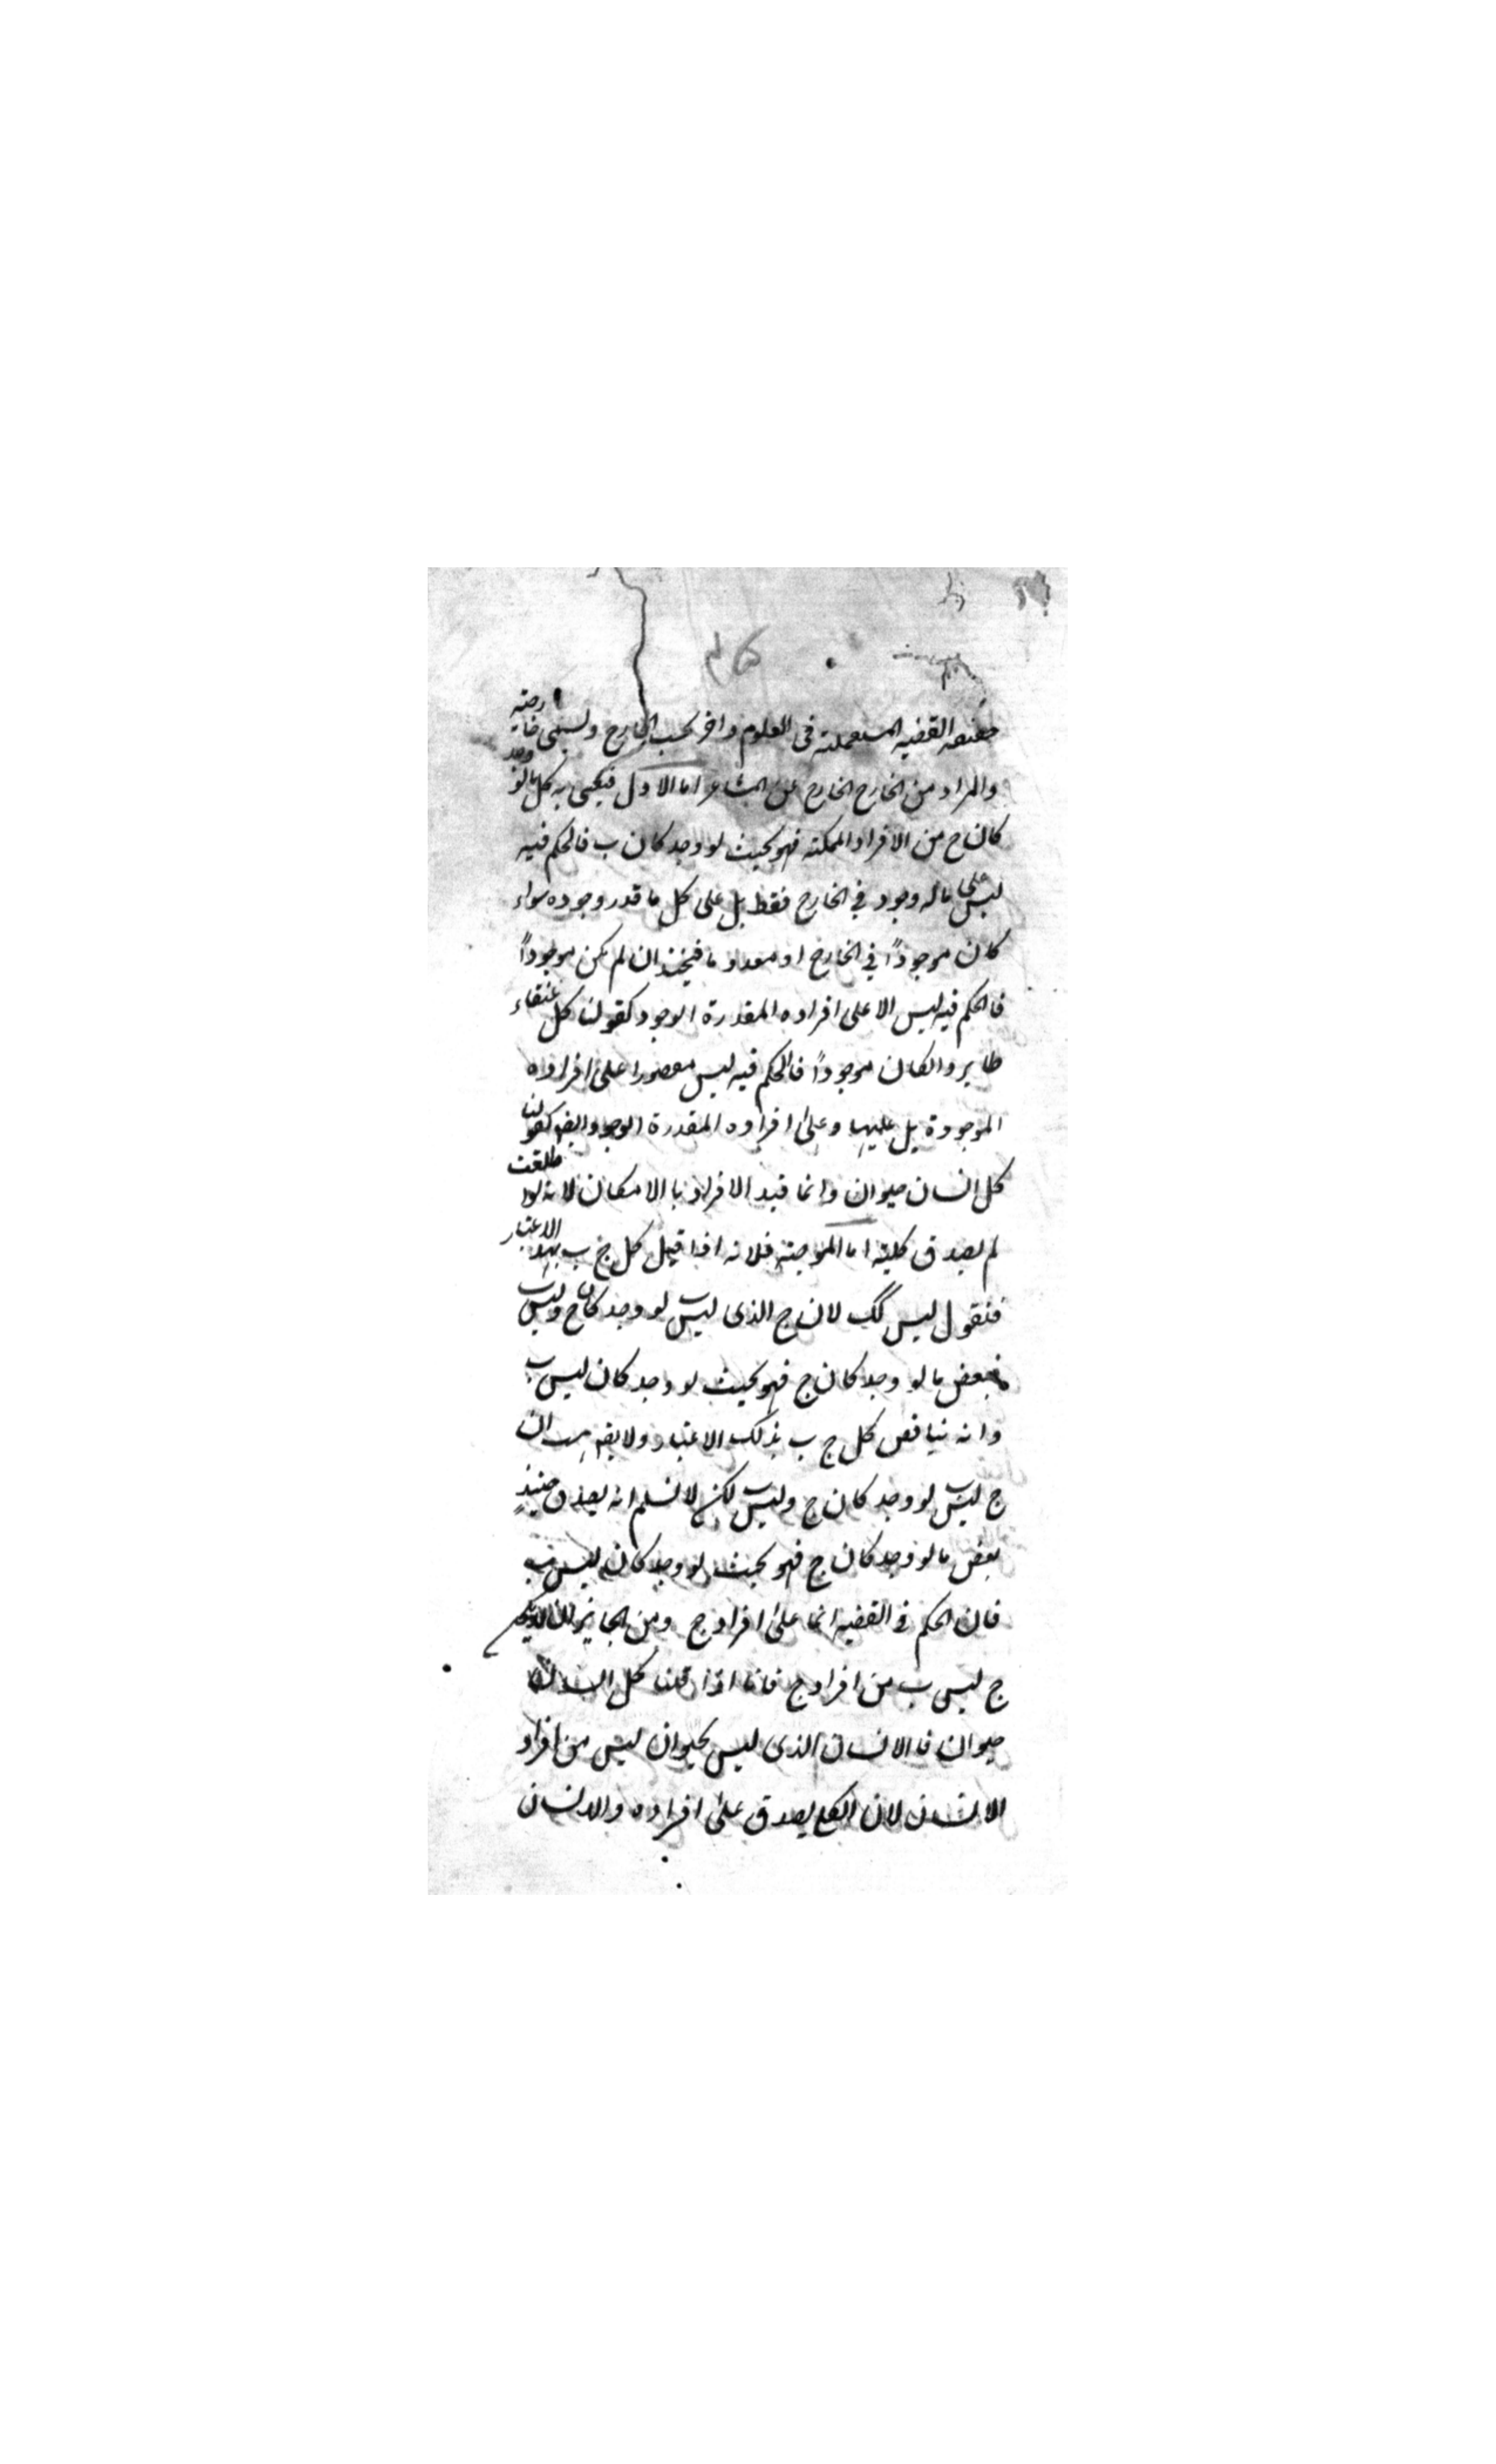 حقيقة القضية المستعملة في العلوم واخر بحسب الخارج ويسمى خارجية
والمراد من الخارج الخارج عن المشاعر اما الاول فيعنى به كل ما لو وجد
كان ج من الافراد الممكنة فهو بحيث لو وجد كان ب فالحكم فيه
ليس على ما له وجود في الخارج فقط بل على كل ما قدر وجوده سواء
كان موجودًا في الخارج او معدوما فحينئذ ان لم يكن موجودًا
فالحكم فيه ليس الا على افراده المقدرة الوجود كقولنا كل عنقاء
طاير وان كان موجودًا فالحكم فيه ليس مقصورا على افراده
الموجودة بل عليها وعلى افراده المقدرة الوجود ايضا كقولنا
كل انسان حيوان وانما قيد الافراد بالامكان لانه لو اطلقت
لم يصدق كلية اما الموجبة فلانه اذا قيل كل ج ب بهذا الاعتبار
فنقول ليس كك لان ج الذى ليس ب لو وجد كان ج وليس ب
فبعض ما لو وجد كان ج فهو بحيث لو وجد كان ليس ب
وانه يناقض كل ج ب بذلك الاعتبار ولا يقه هب ان
ج ليس ب لو وجد كان ج وليس ب لكن لا نسلم انه يصدق حينئذٍ
بعض ما لو وجد كان ج فهو بحيث لو وجد كان ليس ب
فان الحكم في القضيه انما على افراد ج ومن الجايز ان لا يكون
ج ليس ب من افراد ج فانا اذا قلنا كل انسان
حيوان فالانسان الذى ليس بحيوان ليس من افراد
الانسان لان الكلى يصدق على افراده والانسان